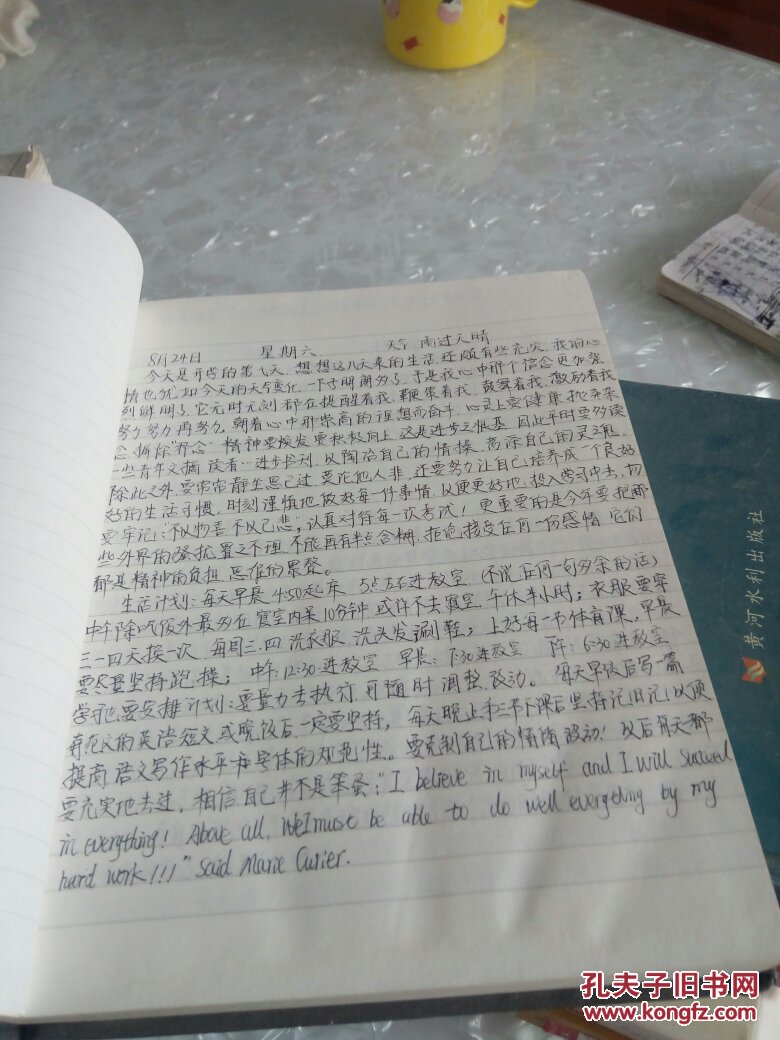 8月24日 星期六 天气 雨过天晴
今天是开学的第七天,想想这几天来的生活,还颇有些充实,我的心
情也犹如今天的天气变化,一下子明朗多了,于是我心中那个信念更加深
刻鲜明了,它无时无刻都在提醒着我,鞭策着我,鼓舞着我,激励着我
努力努力再努力,朝着心中那崇高的理想而奋斗,心灵上要健康,抛弃杂
念,摒除"邪念"精神要焕发,要积极向上,这是进步之根基,因此平时要多读
一些青年文摘,读者…进步书刊,以陶冶自己的情操,高涤自己的灵魂。
除此之外,要常常静坐思己过,莫论他人非,还要努力让自己培养成一个良好
好的生活习惯,时刻谨慎地做好每一件事情,以便更好地投入学习中去,切
要牢记:不以物喜不以己悲;认真对待每一次考试!更重要的是今年要把那
些外界的骚扰置之不理,不能再有半点含糊,拒绝接受任何一份感情,它们
都是精神的负担,思维的累赘。
生活计划:每天早晨4:50起床,5点左右进教室,(不说任何一句多余的话)
中午除吃饭外最多在寝室内呆10分钟或许不去寝室,午休半小时;衣服要穿
三-四天换一次,每周三.四洗衣服、洗头发、涮鞋;上好每一节体育课,早晨
要尽量坚持跑操;中午:12:30进教室 早晨: 进教室 下午:6:30进教室
学习也要安排计划:要量力去执行,可随时调整、改动。每天早饭后写一篇
有范文的英语短文或晚饭后,一定要坚持,每天晚上第三节下课后坚持记日记,以便
提高语文写作水平和字体的规范性。要克制自己的情绪改动!以后每天都
要充实地去过,相信自己并不是笨蛋:"I believe in myself and I will succeed
in everything! Above all, We I must be able to do well everything by my
hard work!!!" said Marie Curier.
黄河水利出版社
孔夫子旧书网
www.kongfz.com